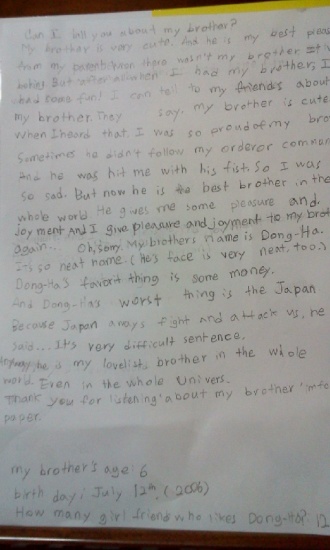 Can I tell you about my brother?
My brother is very cute. And he is my best pleas
from my parents. When there wasn't my brother It's
But after all when I had my brother, I
had some fun! I can tell to my friends about
my brother. They say, my brother is cute
When I heard that. I was so proud of my bro
Sometimes he didn't follow my order or commun
And he was hit me with his fist. So I was
so sad. But now he is the best brother in the
whole world. He gives me some pleasure and
joyment and I give pleasure and joyment to my brot
again... Oh, sorry. My brothers name is Dong-Ha.
It's so neat name. (He's face is very neat, too.)
Dong-Ha's favorit thing is some money.
And Dong-Ha's worst thing is the Japan
Because Japan always fight and attack us, he
said... It's very difficult sentence.
he is my lovelist brother in the whole
world. Even in the whole Univers.
Thank you for listening about my brother
paper.
my brother's age: 6
birth day: July 12th, (2006)
How many girl friend who likes Dong-Ha?: 12